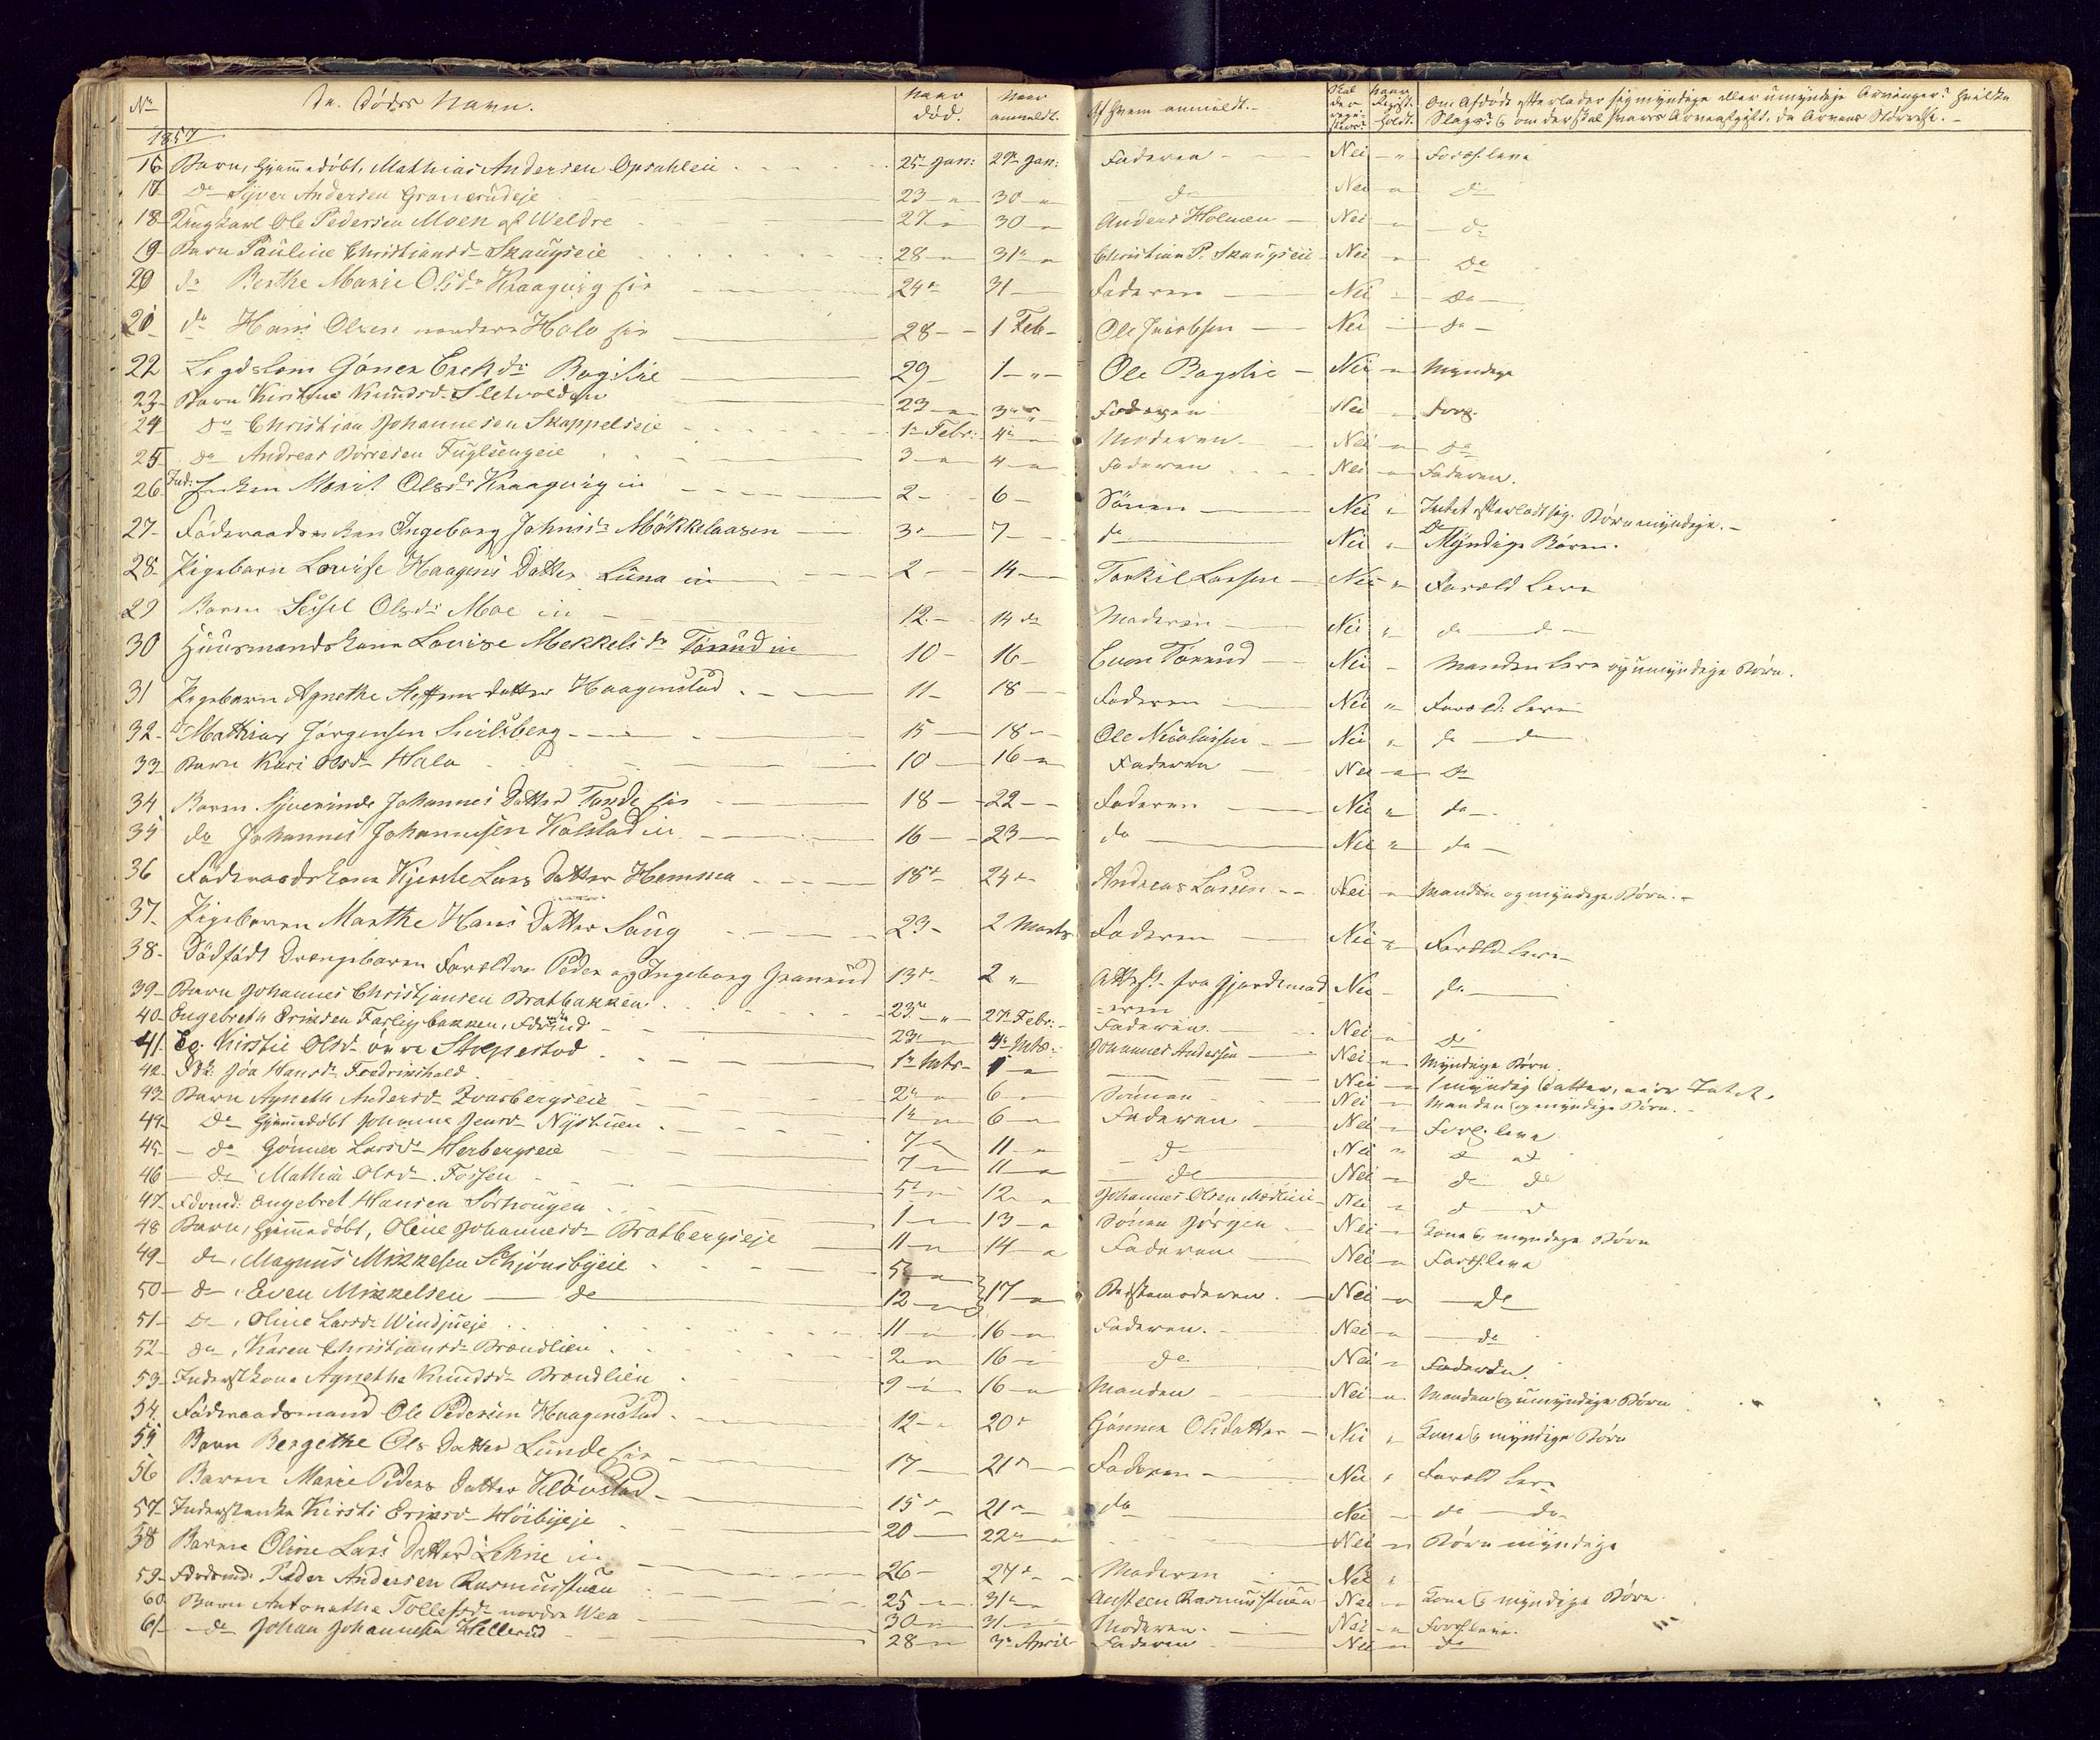 No De Dødes Navn. Naar død. Naar anmeldt. Af Hvem anmeldt. Skal der Naar Regist. holdt. Om Afdøde efterlader sig myndige eller umyndige Arvinger? Hvilke
Slags? & om der skal svares Arveafgift, da Arvens Størrelse.
1857
16 Barn, Hjemmedøbt, Mathias Andersen Opsahleie 25 Jan: 29 Jan: Faderen Nei " Foræl. leve
17 do Syver Andersen Granerudeje 23 " 30 " do Nei " do
18 Ungkarl Ole Pedersen Moen af Weldre 27 " 30 " Anders Holmen Nei " do
19 Barn Pauline Christiansd. Skaugseie 28 " 31 " Christian P. Skaugseie Nei " do
20 do Berthe Marie Olsdr Kraagvig 24 31 Faderen Nei " do
20 do Hans Olsen nordere Halo 28 1 Feb Ole Jacobsen Nei do
22 Legdslem Gønner Eriksdr Baglie 29 1 " Ole Baglie Nei " Myndige
23 Barn Kirstine Knudsd. Sletvolden 23 " 3 " Faderen Nei " Foræ.
24 do Christian Johannesen Skappelseie 1 Febr: 4 " Moderen Nei " do
25 do Andreas Børresen Fuglsengeie 3 " 4 " Faderen Nei " Faderen.
26 Ind: Enken Marit Olsdr Kraagvig 2 6 Sønen Nei " Intet efterladt sig. Børn myndige.
27 Føderaadsenken Ingeborg Johnsdr Møkkelaasen 3 7 do Nei " Myndige Børen.
28 Pigebarn Lovise Haagens Datter Luna 2 14 Torkil Larsen Nei " Foræld leve
29 Barn Sessel Olsdr Moe 12 14 do Moderen Nei " do do
30 Huusmandskone Lovise Mekkelsdr Tørrud 10 16 Even Tørrud Nei Manden leve og umyndige Børn.
31 Pigebarn Agnethe Steffens datter Haagenstad 11 18 Faderen Nei " Foræld: leve
32 Mathias Jørgensen 15 18 Ole Nicolaisen Nei " do do
33 Barn Kari Olsd. Halo 10 16 " Faderen Nei " do
34 Baren Johannes Datter Tande 18 22 Faderen Nei " do
35 do Johannes Johannesen Kalstad 16 23 do Nei " do
36 Føderaadskone Kjerste Lars Datter Hemma 18 24 Andreas Larsen Nei " Manden og myndige Børn.
37 Pigebaren Marthe Hans Datter Saug 23 2 Marts Faderen Nei " Foræld leve
38 Dødfødt Drængebaren Forældre Peder og Ingeborg Granrud 13 2 " Attest fra Gjordemod Nei do
39 Barn Johannes Christiansen Bratbakken 23 " 27 Febr: =eren Faderen Nei " do
40 Engebreth Eriksen Farligbakken, Fdrmd 23 " 4 Mts. Johannes Andersen Nei " Myndige Børn
41 Eg. Kirstie Olsd. øvre Stepestad 1 Mts. Nei " 1 myndig Datter, Intet.
42 Fdk: Hansd. Fredrikshald 2 " 6 " Sønnen Nei " Manden & myndige Børn.
43 Barn Agneth Andersd. 1 " 6 " Faderen Nei " Foræ. leve
44 do Hjemmedøbt Johanne Jensd. Nystuen 7 " 11 " do Nei " do do
45 do Gønner Larsd. Herbergseie 7 " 11 " do Nei " do do
46 do Mathia Olsd. Fossen 5 " 12 " Johannes Olsen Nei " do do
47 Fdrmd: Engebret Hansen Sørhougen 1 " 13 " Sønen Jørgen Nei " Kone & myndige Børn
48 Barn, Hjemmedøbt, Oline Johannesd. Bratbergseje 11 " 14 " Faderen Nei " Foræl. leve
49 do, Magnus Mikkelsen Schjønsbyeie 5 "
50 do, Even Mikkelsen do 12 " 17 " Bedstemoderen. Nei " do
51 do, Oline Larsd. Windjueje 11 " 16 " Faderen. Nei " do
52 do, Karen Christiansd. Brændlien 2 " 16 " do Nei " Faderen.
53 Inderstkone Agnethe Knudsd. Brændlien 9 " 16 " Manden Nei " Manden & umyndige Børn
54 Føderaadsmand Ole Pedersen Haagenstad 12 " 20 Gønner Olsdatter Nei " Kone & myndige Børn
55 Barn Bergethe Ols Datter Lunde 17 21 Faderen Nei " Foræld leve
56 Baren Marie Peders Datter Kløvstad 15 21 do Nei do do
57 Inderstenke Kirsti Eriksd. Høibyeje 20 22 " Nei " Børn myndige
58 Baren Oline Lars Datter Lehne 26 27 Moderen Nei "
59 Fdrdsmd: Peder Andersen Rasmusstuen 25 " 31 " Austeen Rasmusstuen Nei " Kone & myndige Børn
60 Barn Antonethe Tollefsd. nordre Wea 30 " 31 " Moderen. Nei " Foræl. leve.
61 do Johan Johannesen Hellerud 28 " 3 April Faderen Nei " do